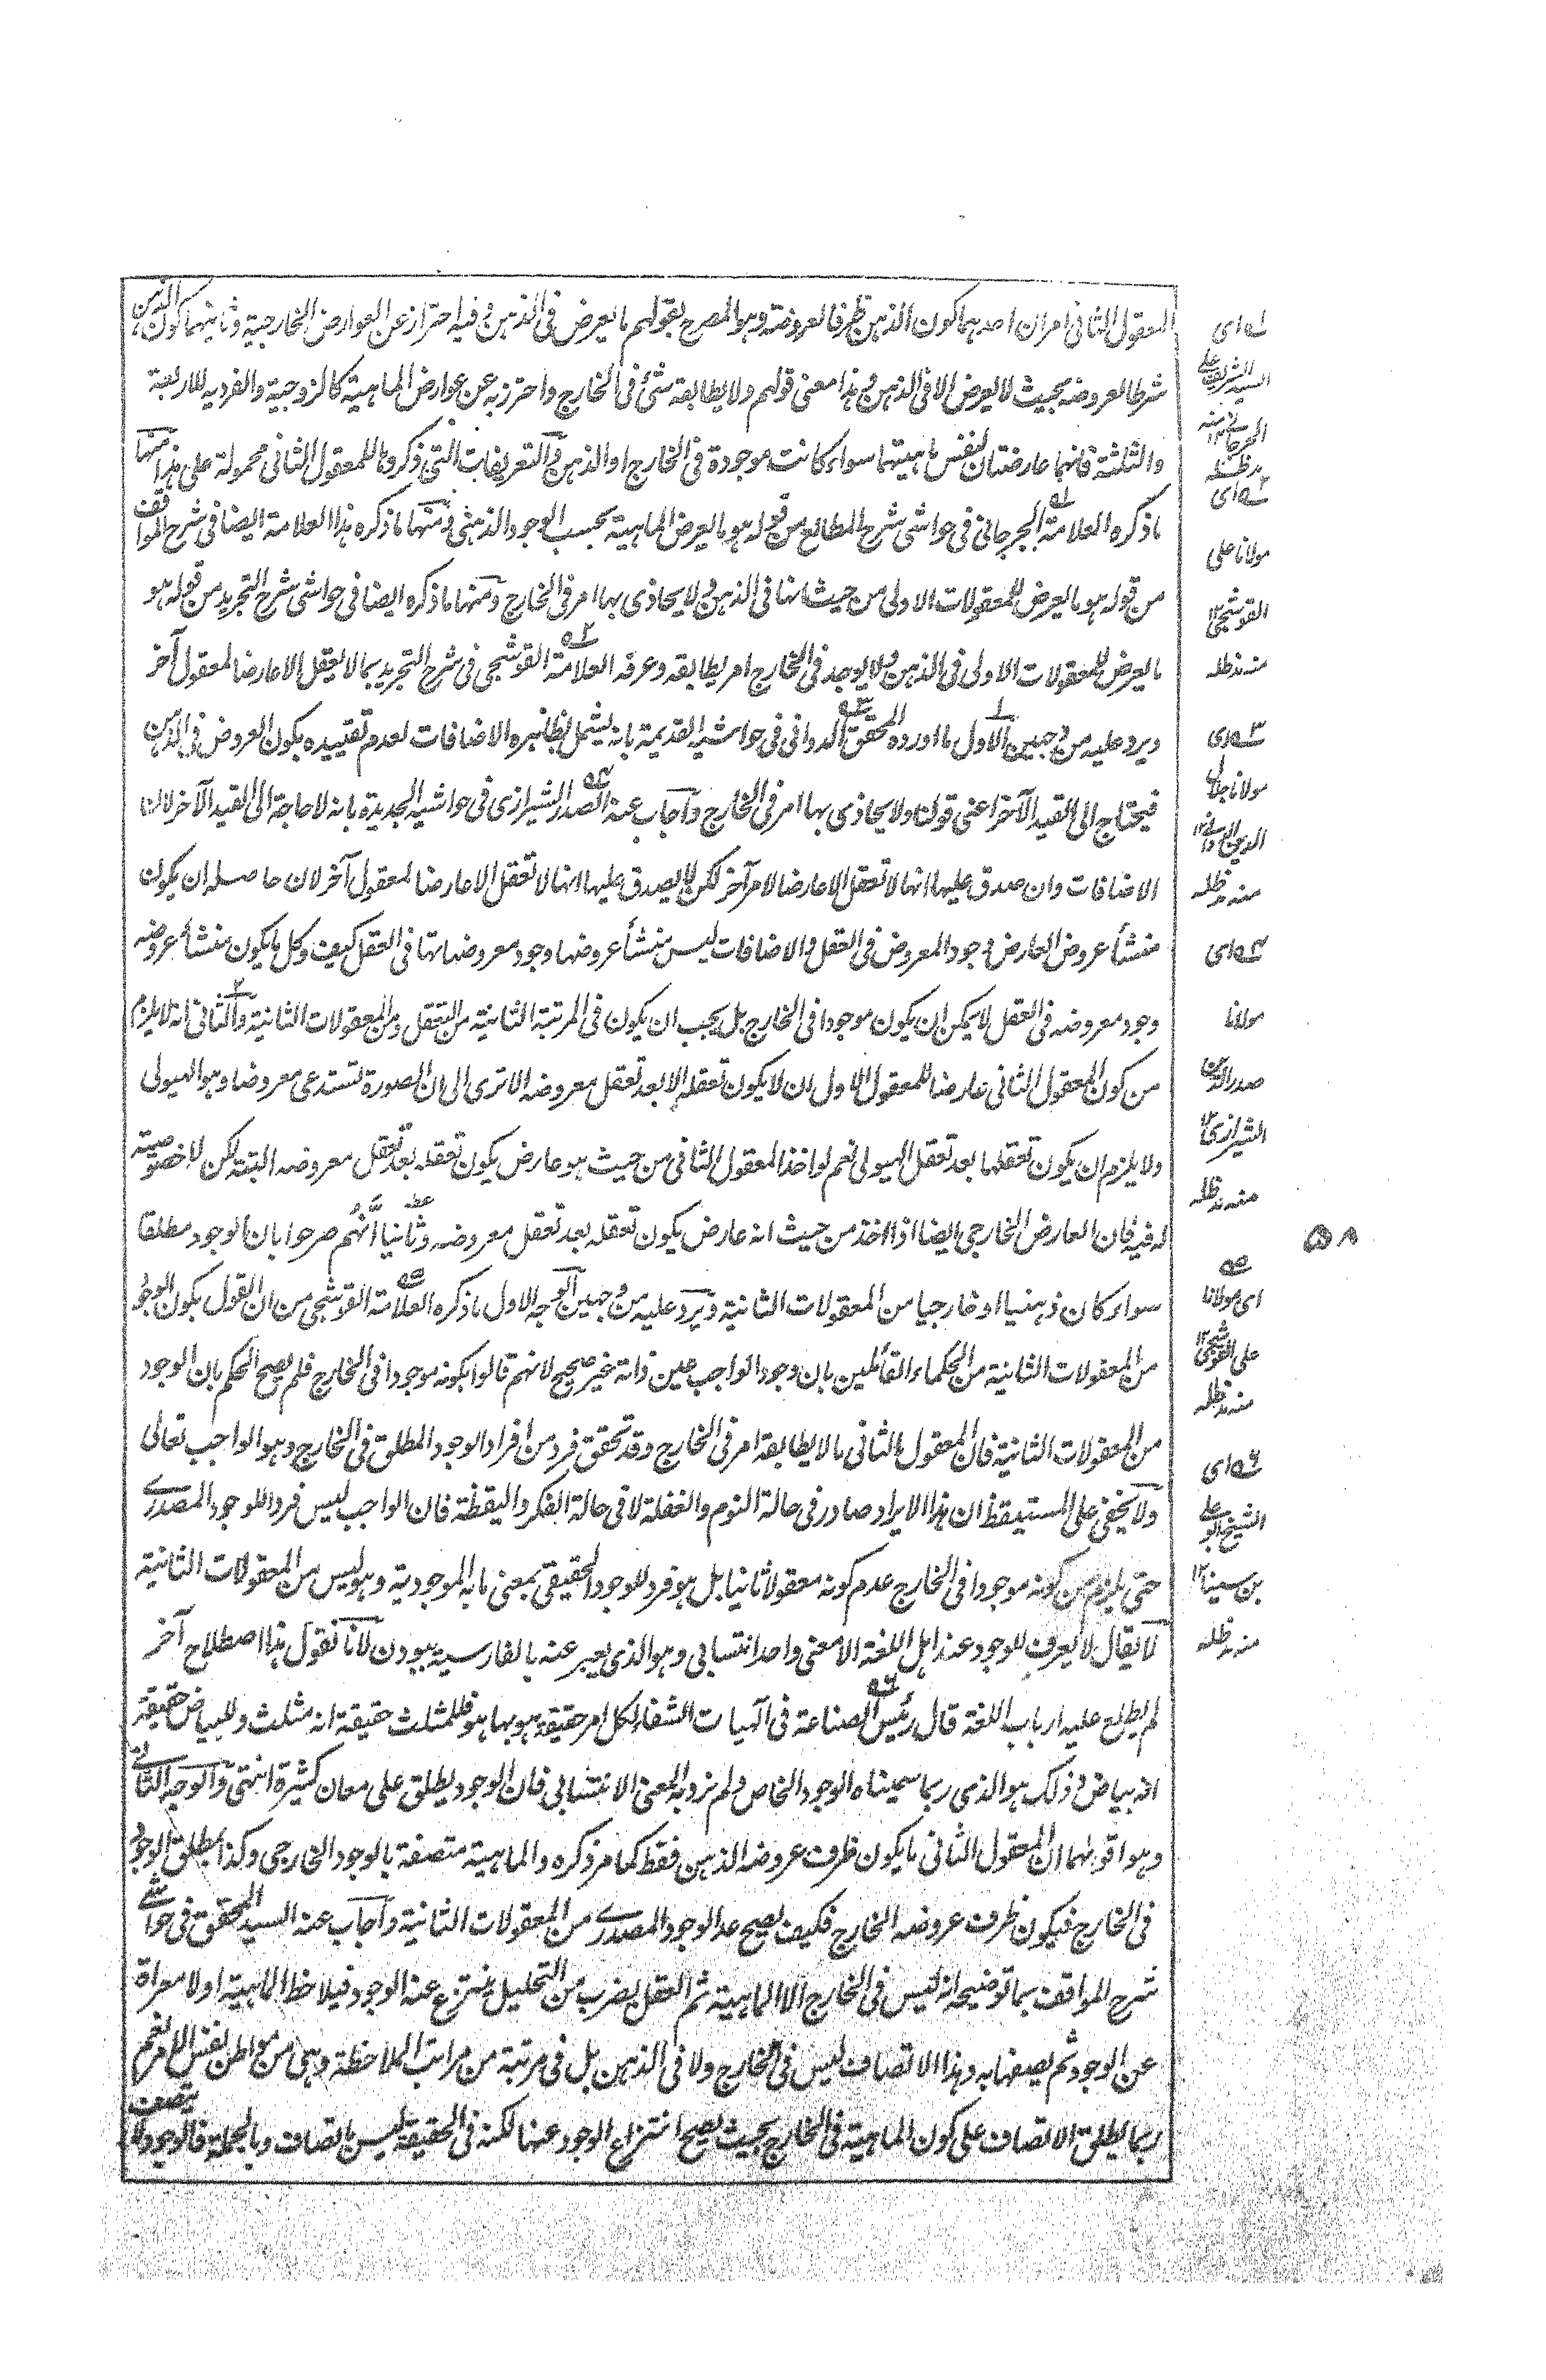 المعقول الثانى امران احدهما كون الذهن ظرفا لعروضه وهو المصرح بقولهم ما يعرض فى الذهن وفيه احتراز عن العوارض الخارجية وثانيهما كون الذهن
شرطا لعروضه بحيث لا يعرض الا فى الذهن وهذا معنى قولهم ولا يطابقه شئ فى الخارج واحترز به عن عوارض الماهية كالزوجية والفردية للاربعة
والثلثة فانهما عارضتان لنفس ماهيتهما سواء كانت موجودة فى الخارج او الذهن والتعريفات التى ذكروها للمعقول الثانى محمولة على هذا منها
ما ذكره العلامة الجرجانى فى حواشى شرح المطالع من قوله هو ما يعرض الماهية بحسب الوجود الذهنى ومنها ما ذكره هذا العلامة ايضا فى شرح المواقف
من قوله هو ما يعرض للمعقولات الاولى من حيث انها فى الذهن ولا يحاذى بها امر فى الخارج ومنها ما ذكره ايضا فى حواشى شرح التجريد من قوله هو
ما يعرض للمعقولات الاولى فى الذهن ولا يوجد فى الخارج امر يطابقه وعرفه العلامة القوشجى فى شرح التجريد بما لا يعقل الا عارضا لمعقول آخر
ويرد عليه من وجهين الاول ما اورده المحقق الدوانى فى حواشيه القديمة بانه يشمل بظاهره الاضافات لعدم تقييده بكون العروض فى الذهن
فيحتاج الى القيد الآخر اعنى قولنا ولا يحاذى بها امر فى الخارج واجاب عنه الصدر الشيرازى فى حواشيه الجديدة بانه لا حاجة الى القيد الآخر لان
الاضافات وان صدق عليها انها لا تعقل الا عارضا لامر آخر لكن لا يصدق عليها انها لا تعقل الا عارضا لمعقول آخر لان حاصله ان يكون
منشأ عروض العارض وجود المعروض فى العقل والاضافات ليس منشأ عروضها وجود معروضاتها فى العقل كيف وكل ما يكون منشأ عروضه
وجود معروضه فى العقل لا يمكن ان يكون موجودا فى الخارج بل يجب ان يكون فى المرتبة الثانية من التعقل ومن المعقولات الثانية والثانى انه لا يلزم
من كون المعقول الثانى عارضا للمعقول الاول ان لا يكون تعقله الا بعد تعقل معروضه الا ترى الى ان الصورة تستدعى معروضا وهو الهيولى
ولا يلزم ان يكون تعقلها بعد تعقل الهيولى نعم لو اخذ المعقول الثانى من حيث هو عارض يكون تعقله بعد تعقل معروضه البتة لكن لا خصوصية
له فيه فان العارض الخارجى ايضا اذا اخذ من حيث انه عارض يكون تعقله بعد تعقل معروضه وثانيا انهم صرحوا بان الوجود مطلقا
سواء كان ذهنيا او خارجيا من المعقولات الثانية ويرد عليه من وجهين الوجه الاول ما ذكره العلامة القوشجى من ان القول بكون الوجود
من المعقولات الثانية من الحكماء القائلين بان وجود الواجب عين ذاته غير صحيح لانهم قالوا بكونه موجودا فى الخارج فلم يصح الحكم بان الوجود
من المعقولات الثانية فان المعقول الثانى ما لا يطابقه امر فى الخارج وقد تحقق فرد من افراد الوجود المطلق فى الخارج وهو الواجب تعالى
ولا يخفى على المستيقظ ان هذا الايراد صادر فى حالة النوم والغفلة لا فى حالة الفكر واليقظة فان الواجب ليس فردا للوجود المصدرى
حتى يلزم من كونه موجودا فى الخارج عدم كونه معقولا ثانيا بل هو فرد للوجود الحقيقى بمعنى ما به الموجودية وهو ليس من المعقولات الثانية
لا يقال لا يعرف للوجود عند اهل اللغة الا معنى واحد انتسابى وهو الذى يعبر عنه بالفارسية ببودن لانا نقول هذا اصطلاح آخر
لم يطلع عليه ارباب اللغة قال رئيس الصناعة فى آلهيات الشفاء لكل امر حقيقة هو بها هو فللمثلث حقيقة انه مثلث وللبياض حقيقة
انه بياض وذلك هو الذى ربما سميناه الوجود الخاص ولم نرد به المعنى الانتسابى فان الوجود يطلق على معان كثيرة انتهى والوجه الثانى
وهو اقوهما ان المعقول الثانى ما يكون ظرف عروضه الذهن فقط كما مر ذكره والماهية متصفة بالوجود الخارجى وكذا بمطلق الوجود
فى الخارج فيكون ظرف عروضه الخارج فكيف يصح عد الوجود المصدرى من المعقولات الثانية واجاب عنه السيد المحقق فى حواشى
شرح المواقف بما توضيحه انه ليس فى الخارج الا الماهية ثم العقل بضرب من التحليل ينتزع عنه الوجود فيلاحظ الماهية اولا معراة
عن الوجود ثم يصفها به وهذا الاتصاف ليس فى الخارج ولا فى الذهن بل فى مرتبة من مراتب الملاحظة وهى من مواطن نفس الامر نعم
ربما يطلق الاتصاف على كون الماهية فى الخارج بحيث يصح انتزاع الوجود عنها لكنه فى الحقيقة ليس باتصاف وبالجملة فالوجود لا يتصف
له اى
السيد الشريف على
الجرجانى ١٢ منه
مد ظله
٢ه اى
مولانا على
القوشجى ١٢
منه مد ظله
٣ه اى
مولانا جلال
الدين الدوانى ١٢
منه مد ظله
٤ه اى
مولانا
صدر الدين
الشيرازى ١٢
منه مد ظله
٥٨
٥ه
اى مولانا
على القوشجى ١٢
منه مد ظله
٦ه اى
الشيخ ابو على
بن سينا ١٢
منه مد ظله